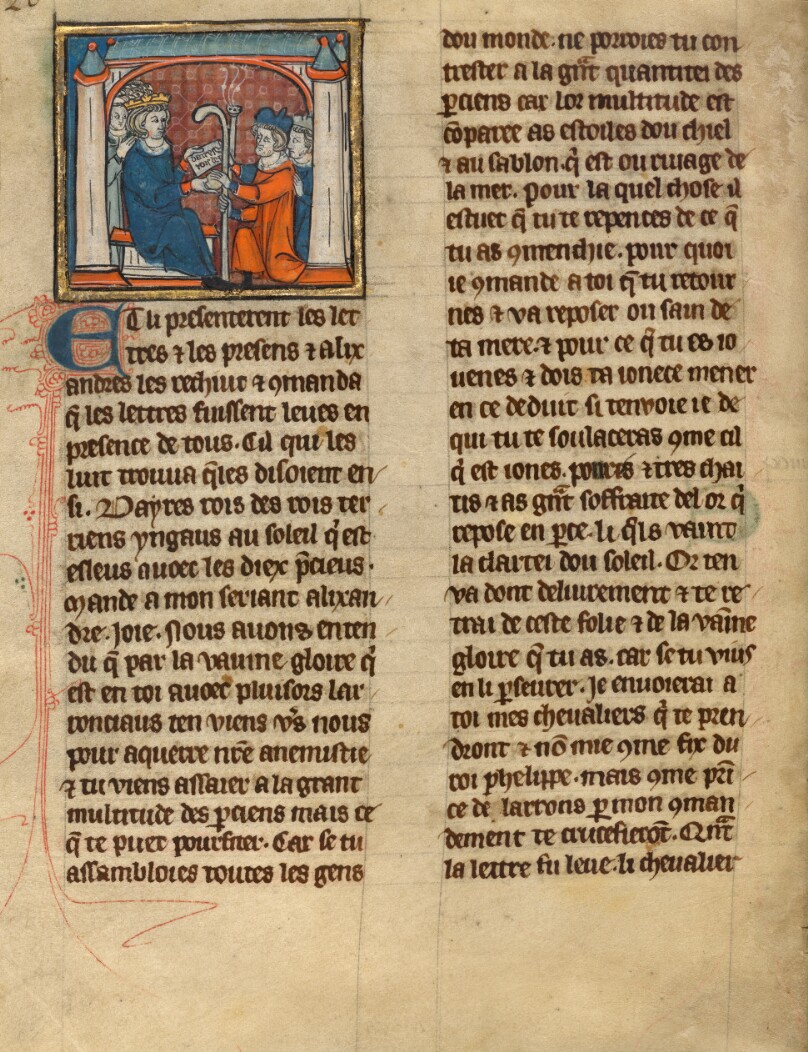 Et li presenterent les let
tres ⁊ les presens ⁊ alix
andres les rechiut ⁊ ꝯmanda
q̃ les lettres fuissent leues en
presence de tous. Cil qui les
luit trouua q̃les disoient en
si. Dayres rois des rois ter
riens yngaus au soleil q̓ est
esleus auoec les diex p̃ciens.
Mande a mon seriant alixan
dre. Joie. Nous auons enten
du q̃ par la vainne gloire q̓
est en toi auoec pluisors lar
ronciaus ten viens v̄s nous
pour aquerre nr̄e anemistie
⁊ tu viens assaier a la grant
multitude des ꝑciens mais ce
q̃ te puet pourfiter. Car se tu
assambloies toutes les gens
dou monde. ne porroies tu con
trester a la gr̃t quantitei des
ꝑciens car lor multitude est
cōparee as estoiles dou chiel
⁊ au sablon. q̓ est ou riuage de
la mer. pour la quel chose il
estuet q̃ tu te repentes de ce q̃
tu as ꝯmenchie. pour quoi
ie ꝯmande a toi q̃ tu retour
nes ⁊ va reposer ou sain de
ta mere. ⁊ pour ce q̃ tu es io
uenes ⁊ dois ta ionece mener
en ce deduit si tenuoie ie de
qui tu te soulaceras ꝯme cil
q̓ est iones. poures ⁊ tres chai
tis ⁊ as gr̃t souffraite del or q̓
repose en ꝑce. li q̓ls vaint
la clartei dou soleil. Or ten
va dont deliurement ⁊ te re
trai de ceste folie ⁊ de la vaine
gloire q̃ tu as. car se tu vius
en li ꝑseurer. Je enuoierai a
toi mes cheualiers q̓ te pren
dront ⁊ nō mie ꝯme fix du
roi phelippe. mais ꝯme pri
ce de larrons ꝑ mon ꝯman
dement te crucefierōt. Qñt
la lettre fu leue. li cheualier